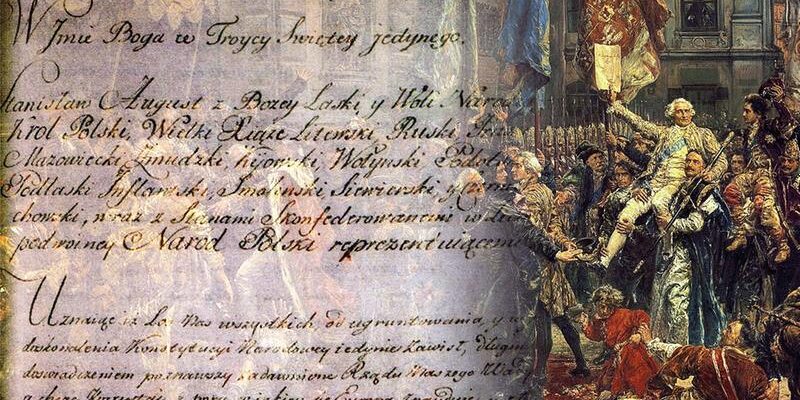 W Jmie Boga w Troycy Swiętey jedynego.
Stanisław August z Bozey Łaski y Woli Narodu
Krol Polski, Wielki Xiąże Litewski, Ruski
Mazowiecki, Zmudzki, Kijowski, Wołynski, Podol
Podlaski, Inflantski, Smolenski, Siewierski, y Czerni
chowski, wraz z Stanami Skonfederowanemi w liczbie
podwoiney Narod Polski reprezentuiącemi
Uznaiąc iż los nas wszystkich, od ugruntowania, y wy
doskonalenia Konstytucyi Narodowey iedynie zawisł, długim
doswiadczeniem poznawszy zadawnione Rządu Naszego Wady
a chcąc korzystać z pory w iakiey się Europa